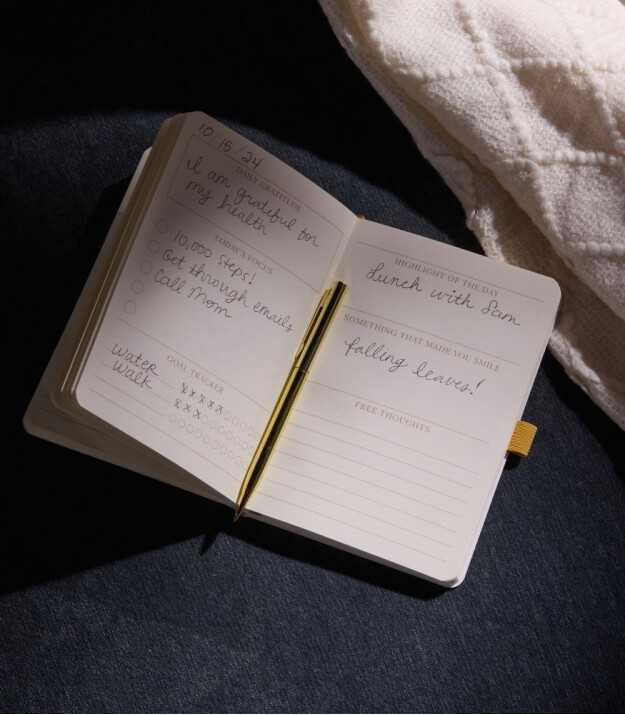 10/15/24
DAILY GRATITUDE
I am grateful for
my health
TODAY'S FOCUS
10,000 steps!
Get through emails
Call Mom
GOAL TRACKER
WATER xxxxx
WALK xxx
HIGHLIGHT OF THE DAY
Lunch with Sam
SOMETHING THAT MADE YOU SMILE
falling leaves!
FREE THOUGHTS